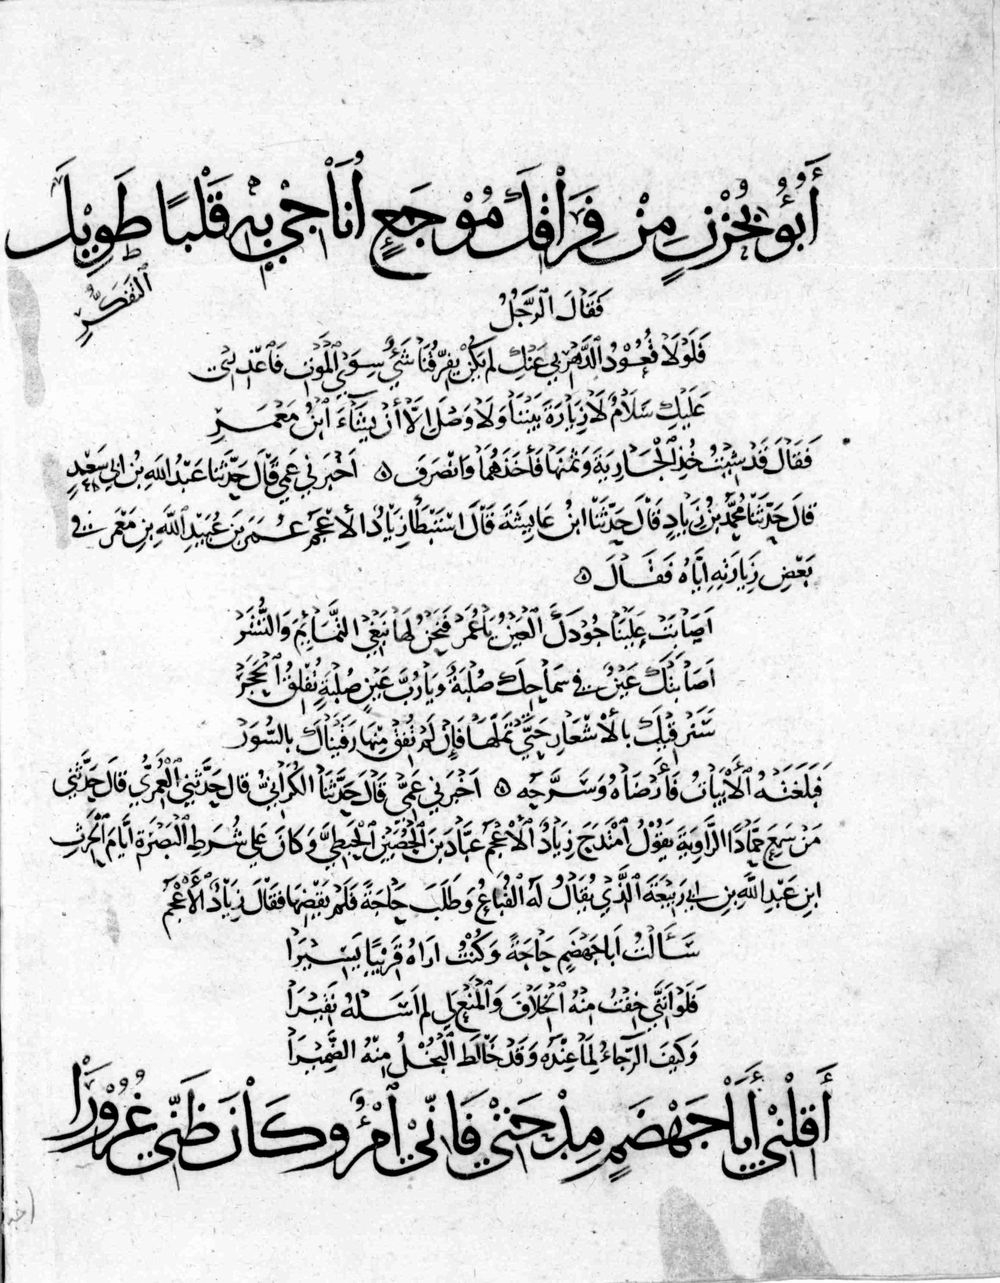 أَبُوءُ بِحُزْنٍ مِنْ فِرَاقِكَ مُوْجَعٍ أُنَاجِيْ بِهِ قَلْبًا طَوِيْلَ
التَّفَكُّرِ
فَقَالَ الرَّجُلُ
فَلَوْلَا قُعُوْدُ الدَّهْرِ بِي عَنْكِ لَمْ يَكُنْ يُفَرِّقُنَا شَيْءٌ سِوَى الْمَوْتِ فَاعْذِرِيْ
عَلَيْكِ سَلَامٌ لَا زِيَارَةَ بَيْنَنَا وَلَا وَصْلَ إِلَّا أَنْ يَشَاءَ ابْنُ مَعْمَرِ
فَقَالَ قَدْ شِئْتُ خُذِ الْجَارِيَةَ وَثَمَنَهَا فَأَخَذَهُمَا وَانْصَرَفَ ۞ أَخْبَرَنِي عَمِّي قَالَ حَدَّثَنَا عَبْدُ اللّٰهِ بْنِ أَبِي سَعِيْدٍ
قَالَ حَدَّثَنَا مُحَمَّدُ بْنُ زِيَادٍ قَالَ حَدَّثَنَا ابْنُ عَايِشَةَ قَالَ اسْتَبْطَأَ زِيَادُ الْأَعْجَمُ عُمَرَ بْنَ عُبَيْدِ اللّٰهِ بْنِ مَعْمَرٍ فِي
بَعْضِ زِيَارَتِهِ إِيَّاهُ فَقَالَ ۞
أَصَابَتْ عَلَيْنَا جُوْدَكَ الْعَيْنُ يَا عُمَرُ فَنَحْنُ لَهَا نَبْغِي التَّمَائِمَ وَالنُّشَرْ
أَصَابَتْكَ عَيْنٌ فِي سَمَاحِكَ صُلْبَةٌ وَيَا رُبَّ عَيْنٍ صُلْبَةٍ تُفْلِقُ الْحَجَرْ
سَنَرْقِيْكَ بِالْأَشْعَارِ حَتَّى تَمَلَّهَا فَإِنْ لَمْ تُفِقْ مِنْهَا رَقَيْنَاكَ بِالسُّوَرْ
فَبَلَغَتْهُ الْأَبْيَاتُ فَأَرْضَاهُ وَسَرَّحَهُ ۞ أَخْبَرَنِي عَمِّيْ قَالَ حَدَّثَنَا الْكُرَانِيُّ قَالَ حَدَّثَنِي الْعُمَرِيُّ قَالَ حَدَّثَنِي
مَنْ سَمِعَ حَمَّادًا الرَّاوِيَةَ يَقُوْلُ امْتَدَحَ زِيَادٌ الْأَعْجَمُ عَبَّادَ بْنَ الْحُصَيْنِ الْحَبَطِيَّ وَكَانَ عَلَى شُرَطِ الْبَصْرَةِ أَيَّامَ الْحَرْثِ
ابْنِ عَبْدِ اللّٰهِ بْنِ أَبِي رَبِيْعَةَ الَّذِي يُقَالُ لَهُ الْقُبَاعُ وَطَلَبَ حَاجَةً فَلَمْ يَقْضِهَا فَقَالَ زِيَادٌ الْأَعْجَمُ
سَأَلْتُ أَبَا جَهْضَمٍ حَاجَةً وَكُنْتُ أَرَاهُ قَرِيْبًا يَسِيْرَا
فَلَوْ أَنَّنِي خِفْتُ مِنْهُ الْخِلَافَ وَالْمَنْعَ لِي لَمْ أَسَلْهُ نَقِيْرَا
وَكَيْفَ الرَّجَاءُ لِمَا عِنْدَهُ وَقَدْ خَالَطَ الْبُخْلُ مِنْهُ الضَّمِيْرَا
أَقِلْنِيْ أَبَا جَهْضَمٍ مِدْحَتِيْ فَإِنِّيْ امْرُؤٌ كَانَ ظَنِّيْ غُرُوْرًا